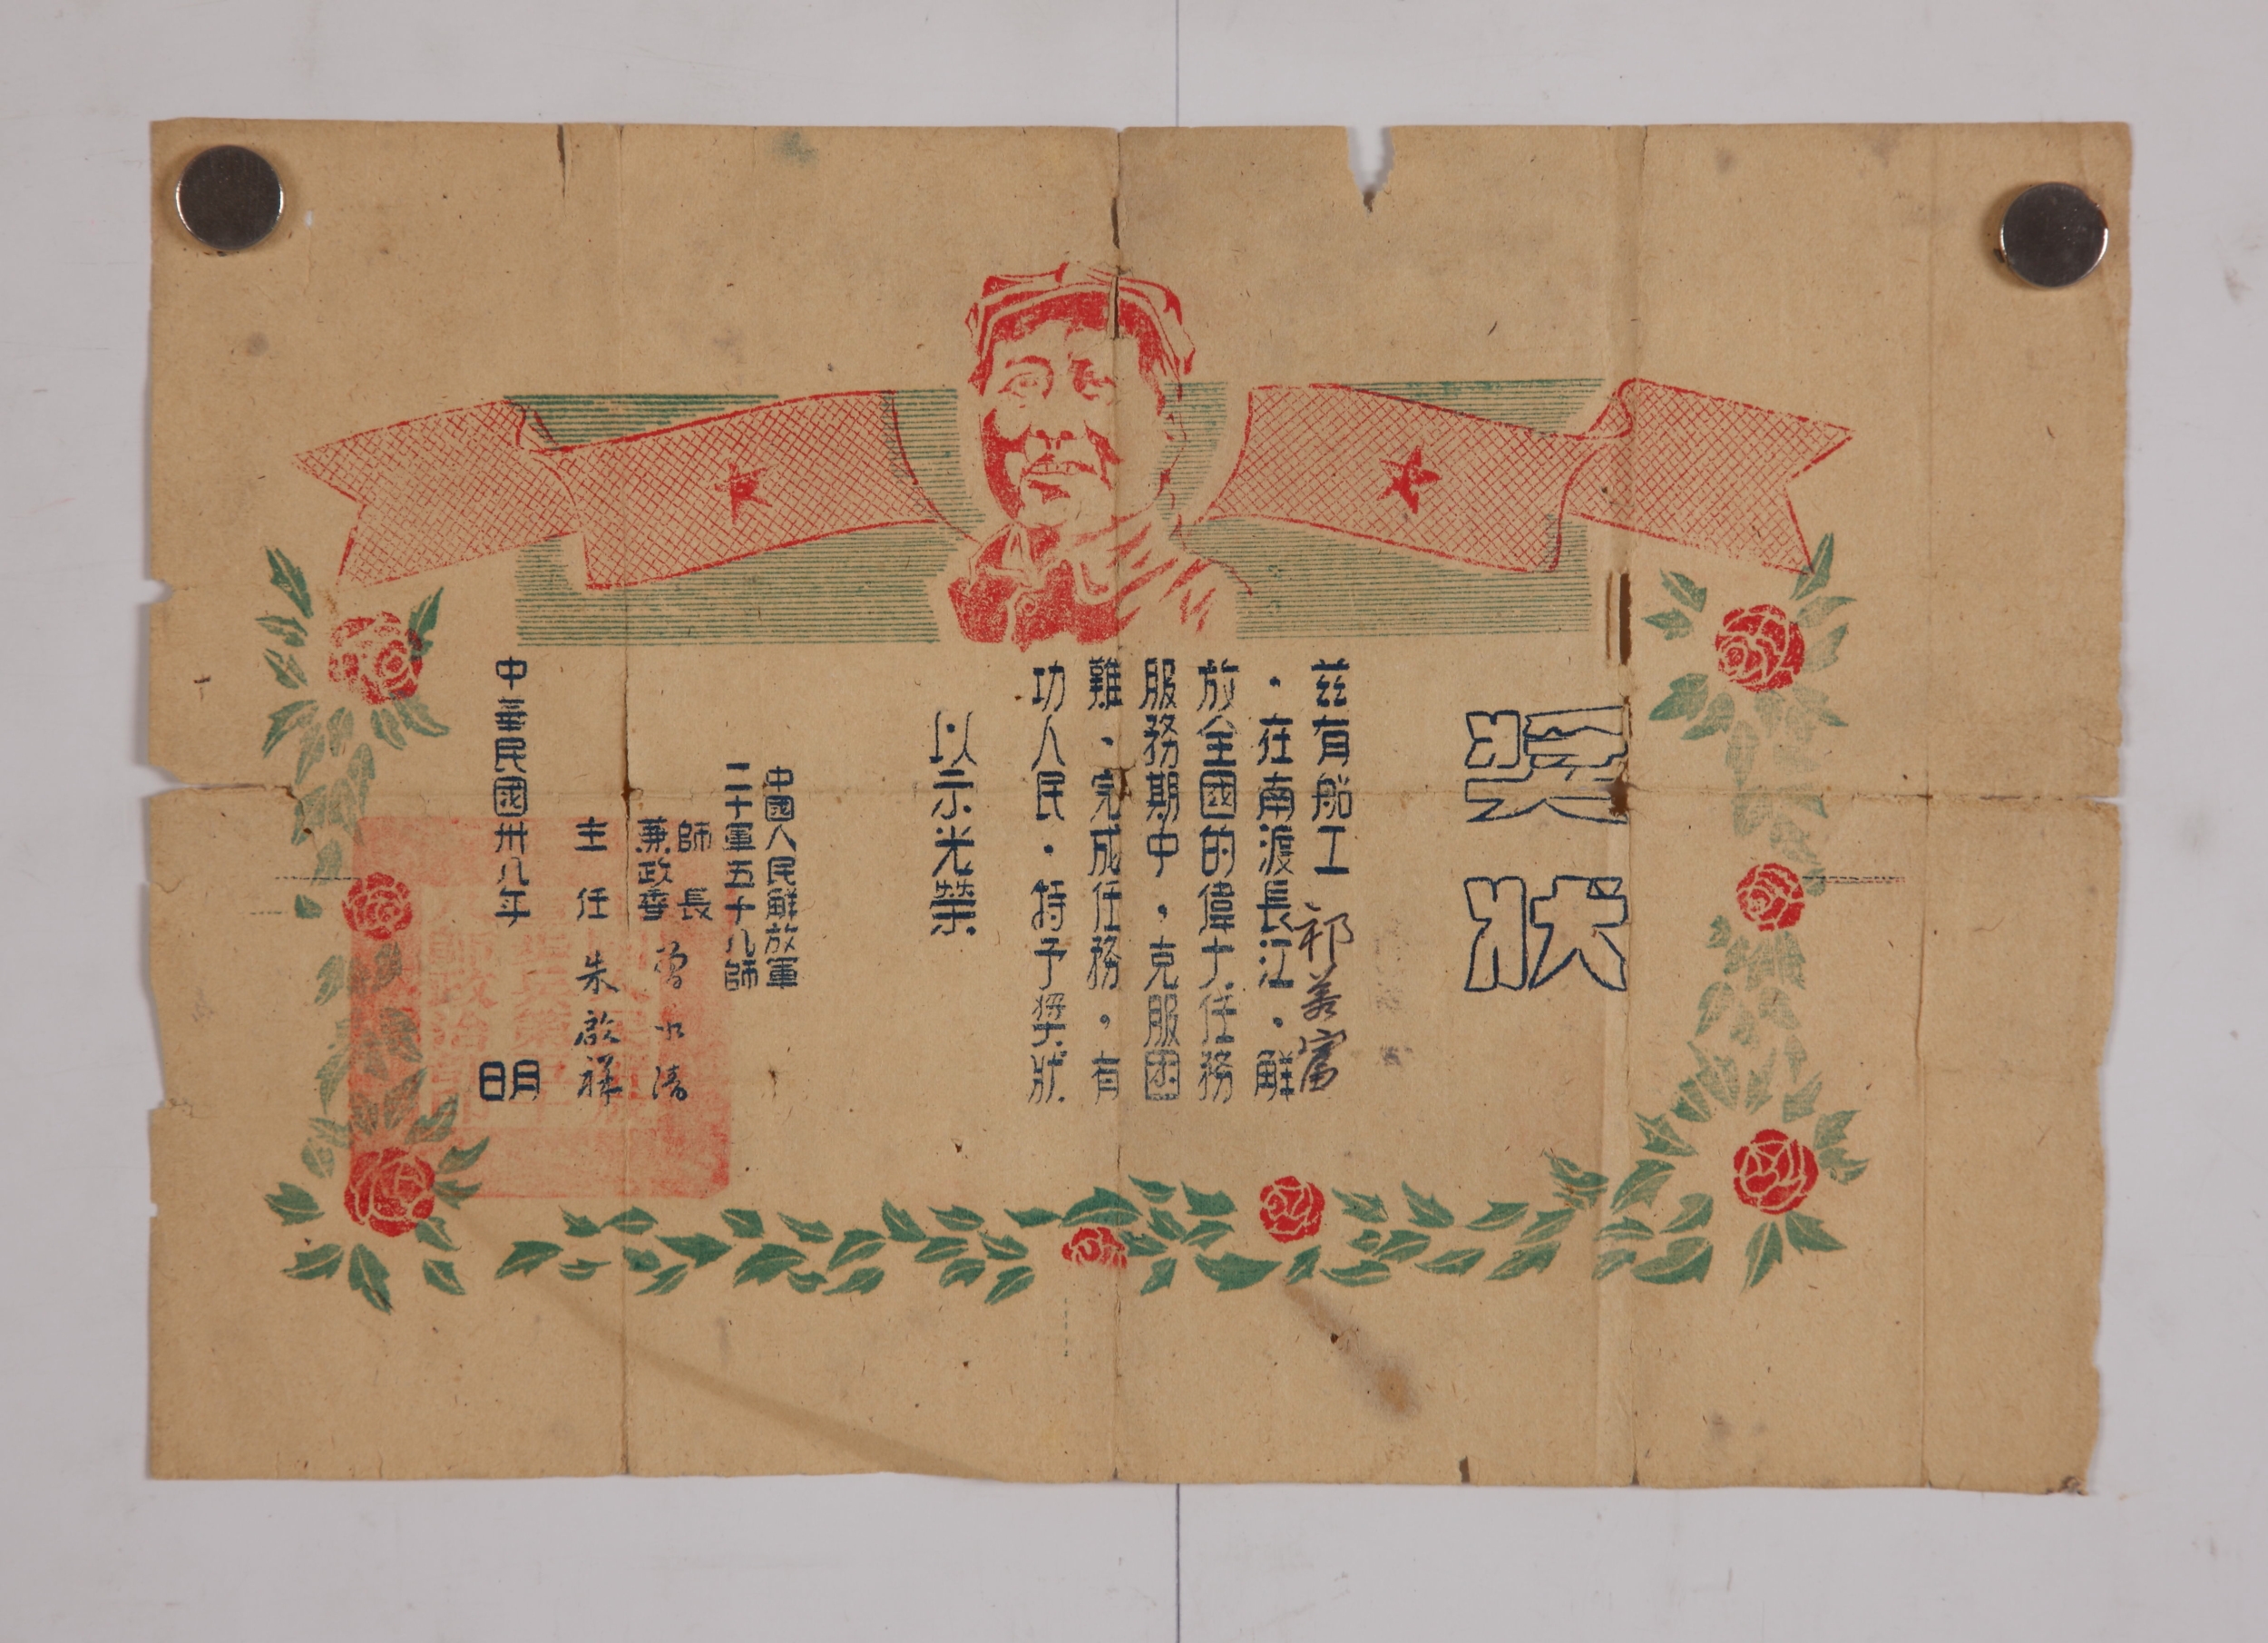 奨狀
茲有船工祁善富
·在南渡長江·解
放全國的偉大任務
服務期中·克服困
難·完成任務·有
功人民·特予奨狀
以示光榮
中國人民解放軍
二十軍五十八師
師長
兼政委 曾如清
主任 朱啟祥
中華民國卅八年 月 日